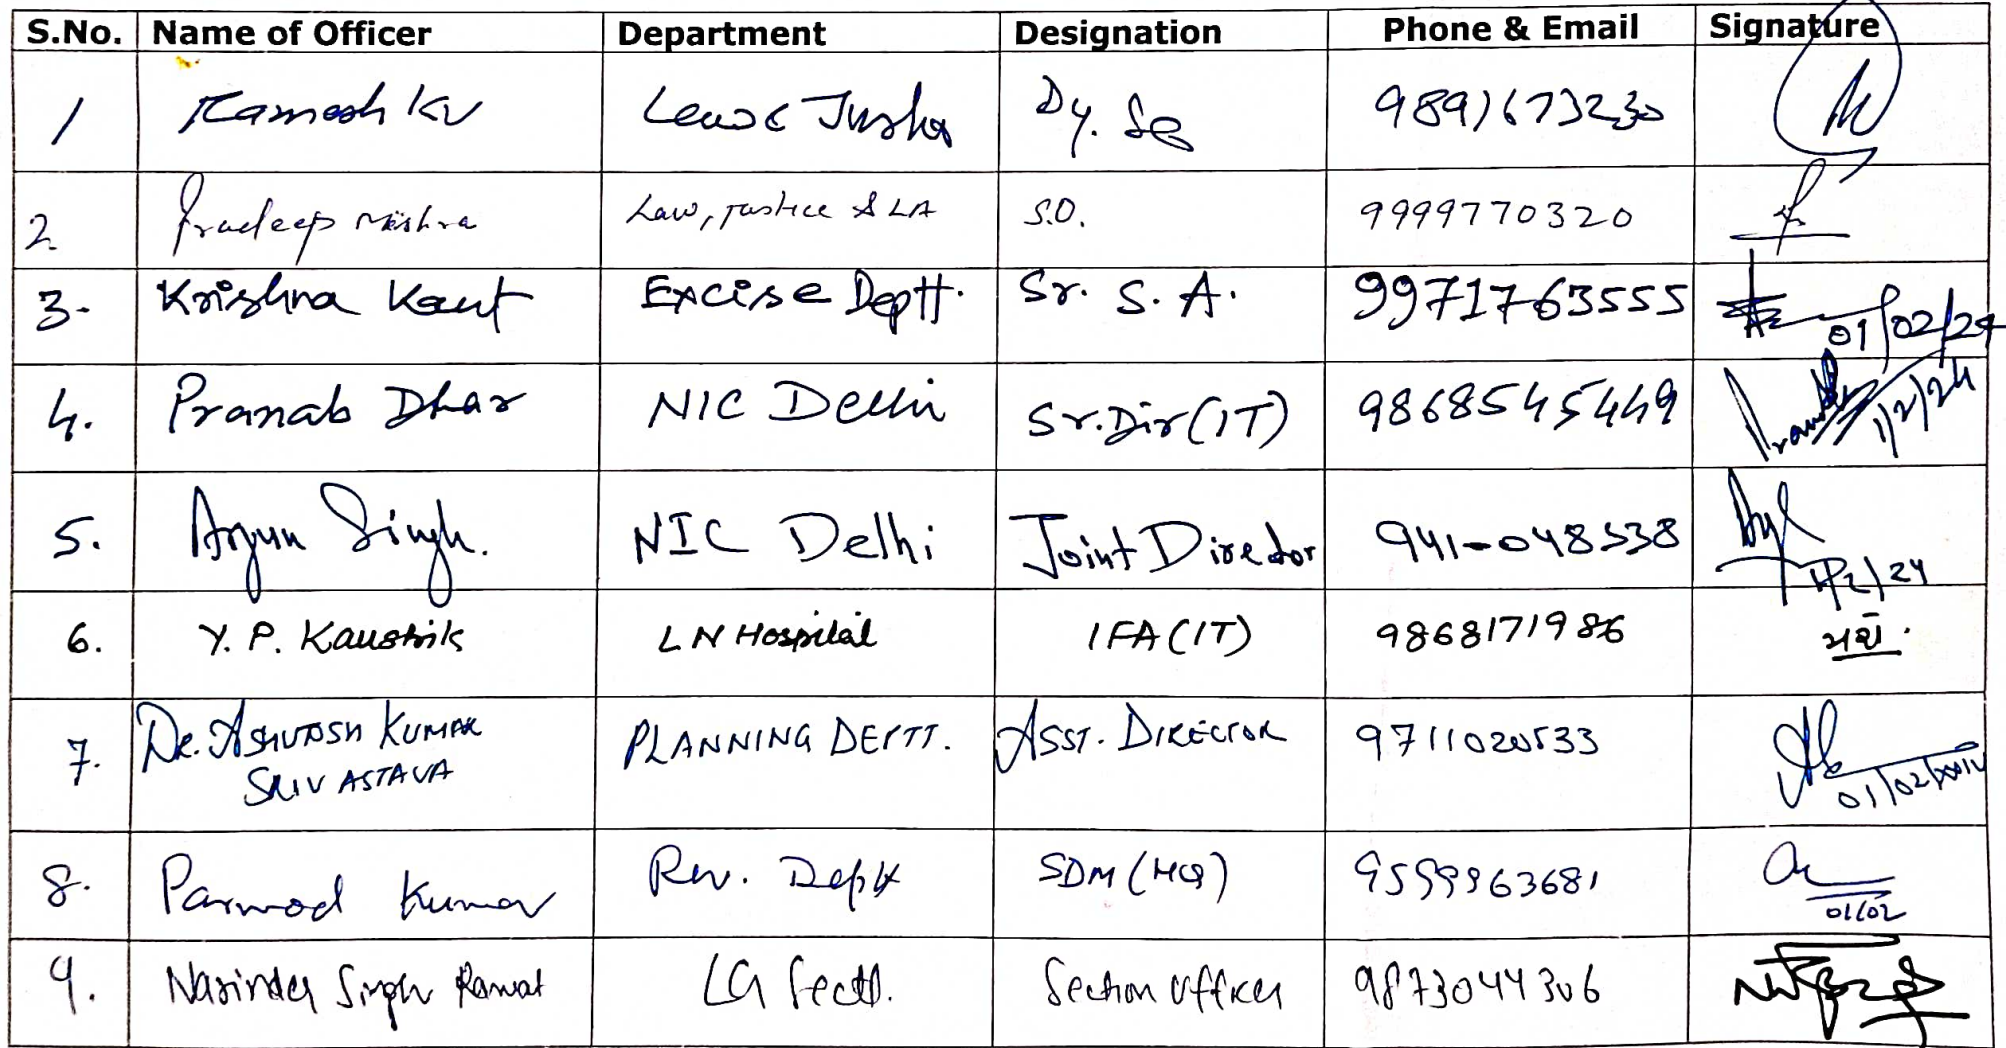 S.No. Name of Officer Department Designation Phone & Email Signature
1 Ramesh Kr Law & Justice Dy. Se 9891673230
2. Pradeep Mishra Law, Justice & LA S.O. 9999770320
3. Krishna Kant Excise Deptt. Sr. S. A. 9971763555 01/02/24
4. Pranab Dhar NIC Delhi Sr.Dir(IT) 9868545449 1/2/24
5. Arjun Singh. NIC Delhi Joint Director 1/2/24
6. Y. P. Kaushik LN Hospital IFA(IT) 9868171986
7. Dr. ASHUTOSH KUMAR SRIVASTAVA PLANNING DEPTT. ASST. DIRECTOR 9711020533 01/02/
8. Parmod Kumar Rev. Deptt SDM (HQ) 9599963681 01/02
9. Narinder Singh Rawat LG Sectt. Section Officer 9873044306